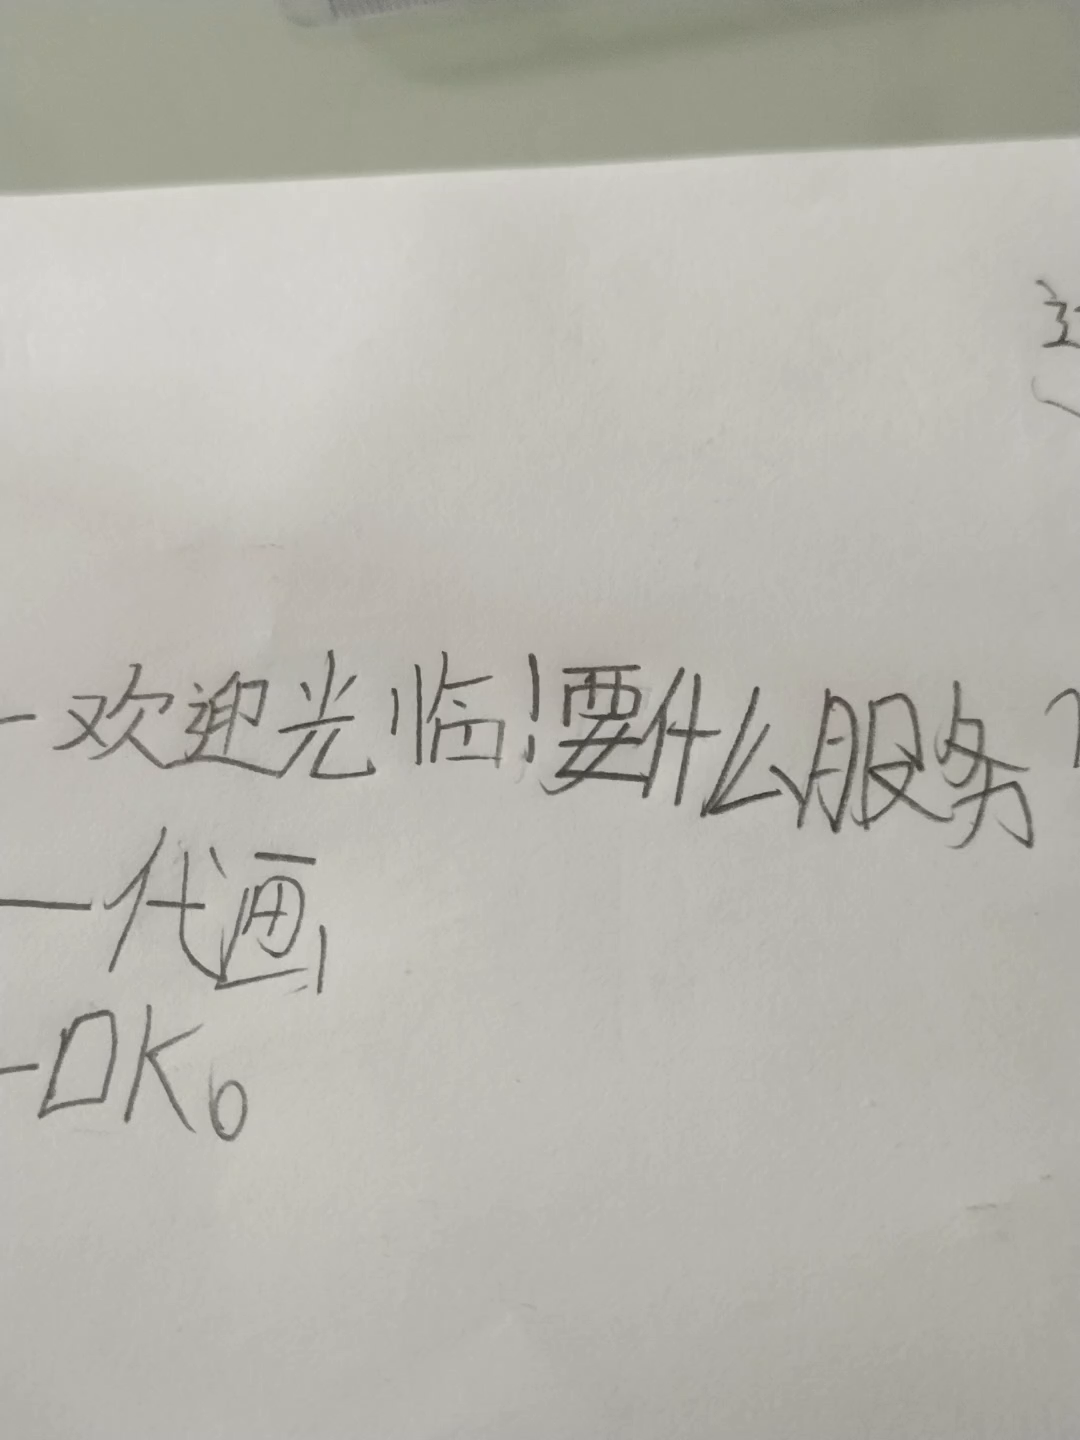 -欢迎光临!要什么服务?
—代画
-OK。